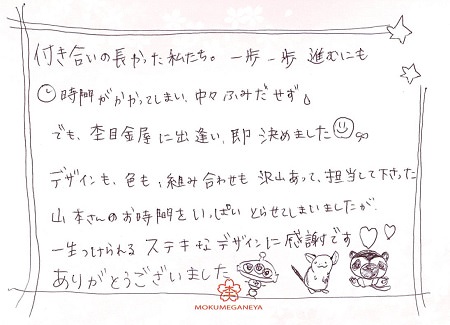 付き合いの長かった私たち。一歩一歩進むにも
時間がかかってしまい、中々ふみだせず。
でも、杢目金屋に出逢い、即決めました
デザインも、色も、組み合わせも沢山あって、担当して下さった
山本さんのお時間をいっぱいとらせてしまいましたが、
一生つけられるステキなデザインに感謝です♡♡
ありがとうございました
MOKUMEGANEYA